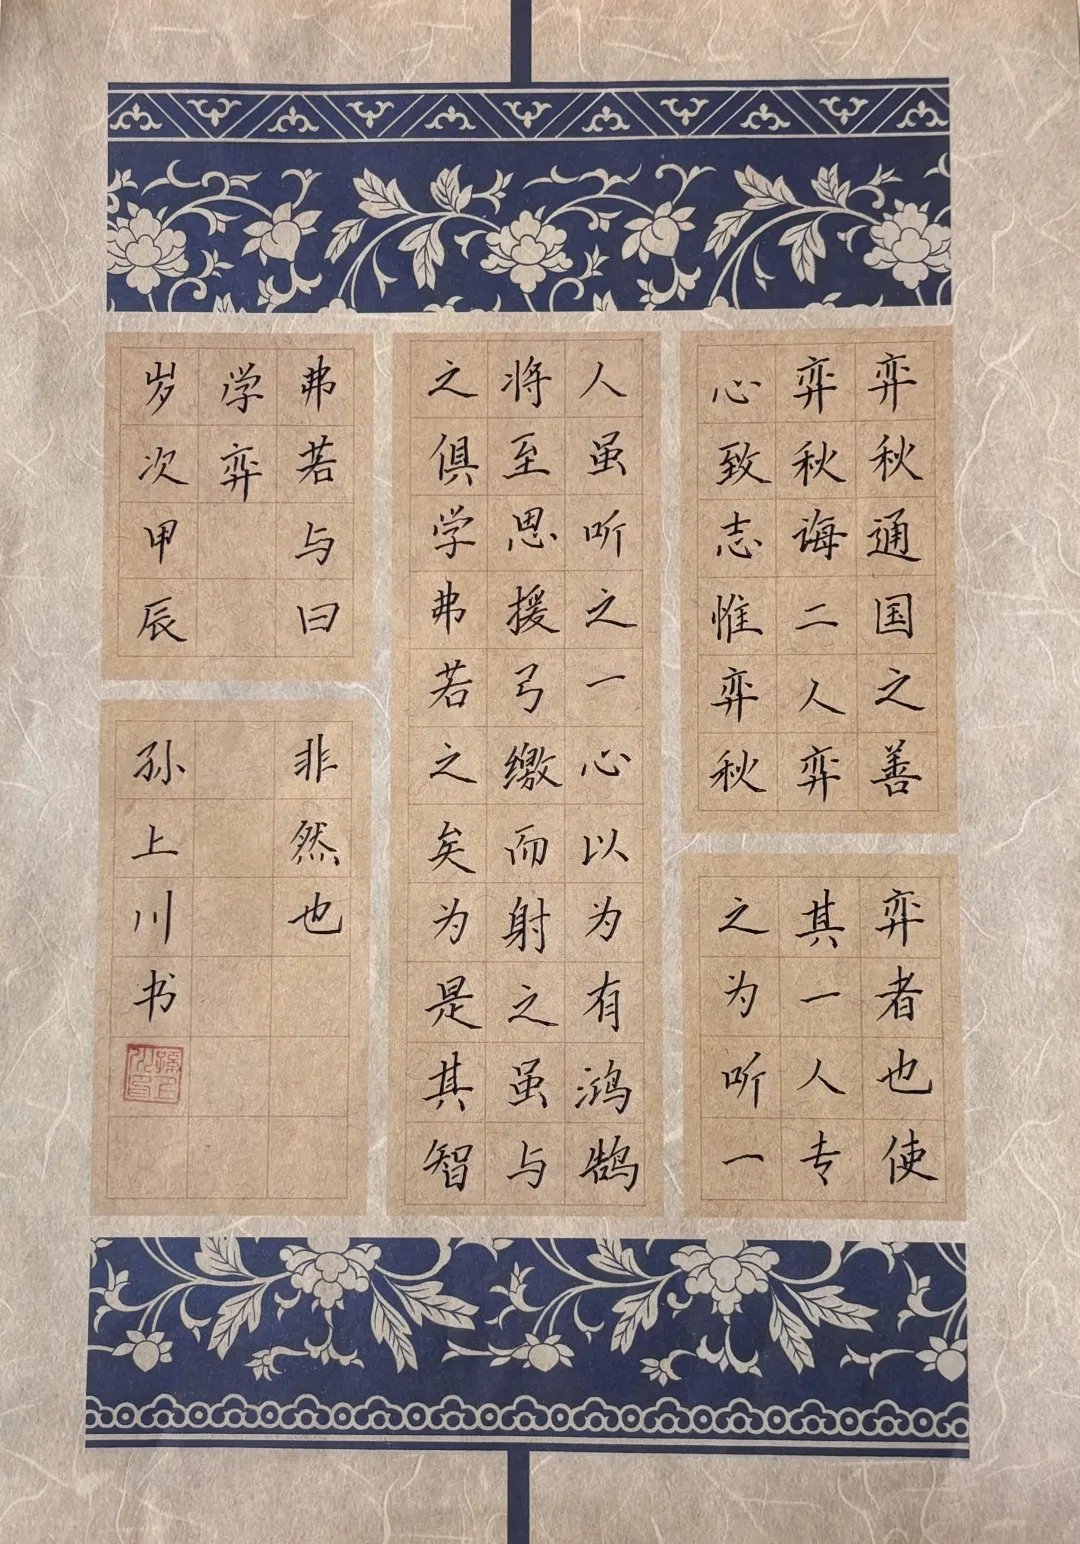 弈秋通国之善弈者也使
弈秋诲二人弈其一人专
心致志惟弈秋之为听一
人虽听之一心以为有鸿鹄
将至思援弓缴而射之虽与
之俱学弗若之矣为是其智
弗若与曰非然也
学弈
岁次甲辰孙上川书
孫上川印